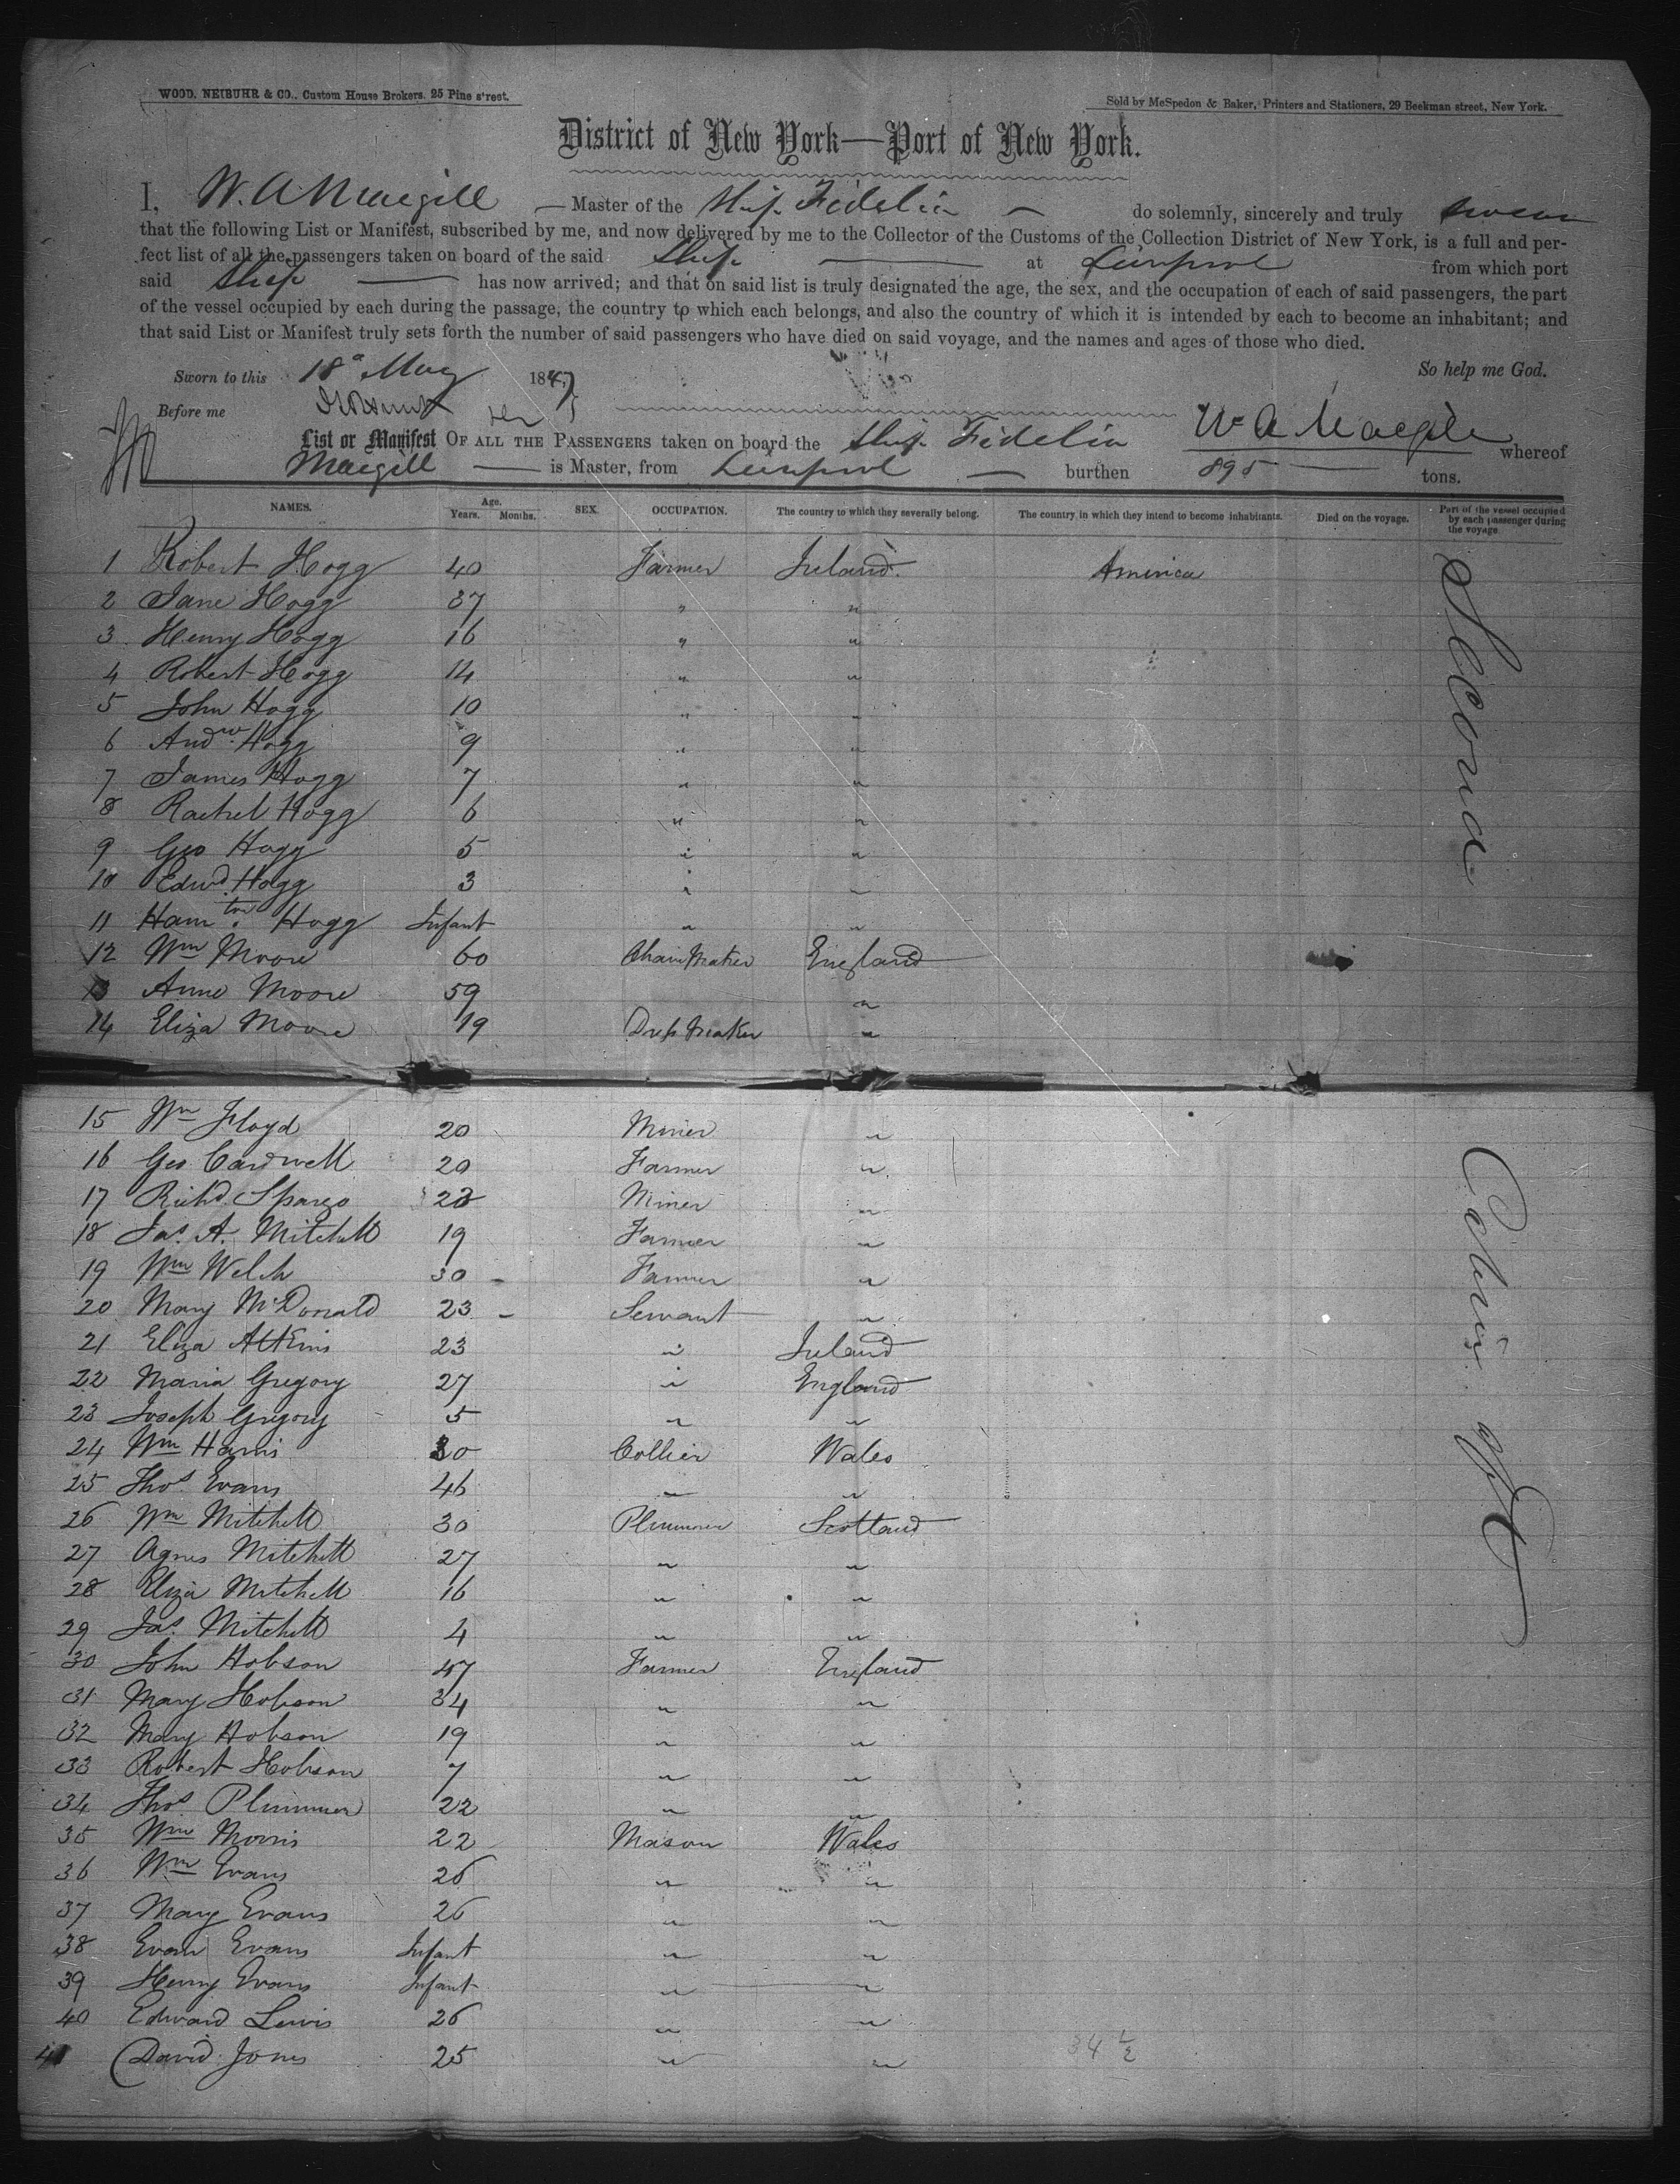 WOOD, NEIBUHR & CO., Custom House Brokers, 25 Pine street.
Sold by McSpedon & Baker, Printers and Stationers, 29 Beekman street, New York.
District of New York—Port of New York.
I, W. A. Macgill — Master of the Ship Fidelia — do solemnly, sincerely and truly swear
that the following List or Manifest, subscribed by me, and now delivered by me to the Collector of the Customs of the Collection District of New York, is a full and per-
fect list of all the passengers taken on board of the said Ship — at Liverpool from which port
said Ship — has now arrived; and that on said list is truly designated the age, the sex, and the occupation of each of said passengers, the part
of the vessel occupied by each during the passage, the country to which each belongs, and also the country of which it is intended by each to become an inhabitant; and
that said List or Manifest truly sets forth the number of said passengers who have died on said voyage, and the names and ages of those who died.
So help me God.
Sworn to this 18 May 1847
Before me
W A Macgill
List or Manifest OF ALL THE PASSENGERS taken on board the Ship Fidelia whereof
Macgill — is Master, from Liverpool — burthen 895 — tons.
NAMES. Age. Years. Months. SEX. OCCUPATION. The country to which they severally belong. The country in which they intend to become inhabitants. Died on the voyage. Part of the vessel occupied by each passenger during the voyage
1 Robert Hogg 40 Farmer Ireland America
2 Jane Hogg 37 " "
3 Henry Hogg 16 " "
4 Robert Hogg 14 " "
5 John Hogg 10 " "
6 Andw Hogg 9 " "
7 James Hogg 7 " "
8 Rachel Hogg 6 " "
9 Geo Hogg 5 " "
10 Edwd Hogg 3 " "
11 Hamton Hogg Infant " "
12 Wm Moore 60 Chain Maker England
13 Anne Moore 59 "
14 Eliza Moore 19 Dress Maker "
15 Wm Floyd 20 Miner "
16 Geo Cardwell 20 Farmer "
17 Richd Spargo 23 Miner "
18 Jas. A. Mitchell 19 Farmer "
19 Wm Welch 30 Farmer "
20 Mary McDonald 23 Servant "
21 Eliza Atkins 23 " Ireland
22 Maria Gregory 27 " England
23 Joseph Gregory 5 " "
24 Wm Harris 30 Collier Wales
25 Thos Evans 46 " "
26 Wm Mitchell 30 Plummer Scotland
27 Agnes Mitchell 27 " "
28 Eliza Mitchell 16 " "
29 Jas. Mitchell 4 " "
30 John Hobson 47 Farmer England
31 Mary Hobson 34 " "
32 Mary Hobson 19 " "
33 Robert Hobson 7 " "
34 Thos Plummer 22 " "
35 Wm Morris 22 Mason Wales
36 Wm Evans 26 " "
37 Mary Evans 26 " "
38 Evan Evans Infant " "
39 Henry Evans Infant " "
40 Edward Lewis 26 " "
41 David Jones 25 " "
34 1/2
Second
Cabin